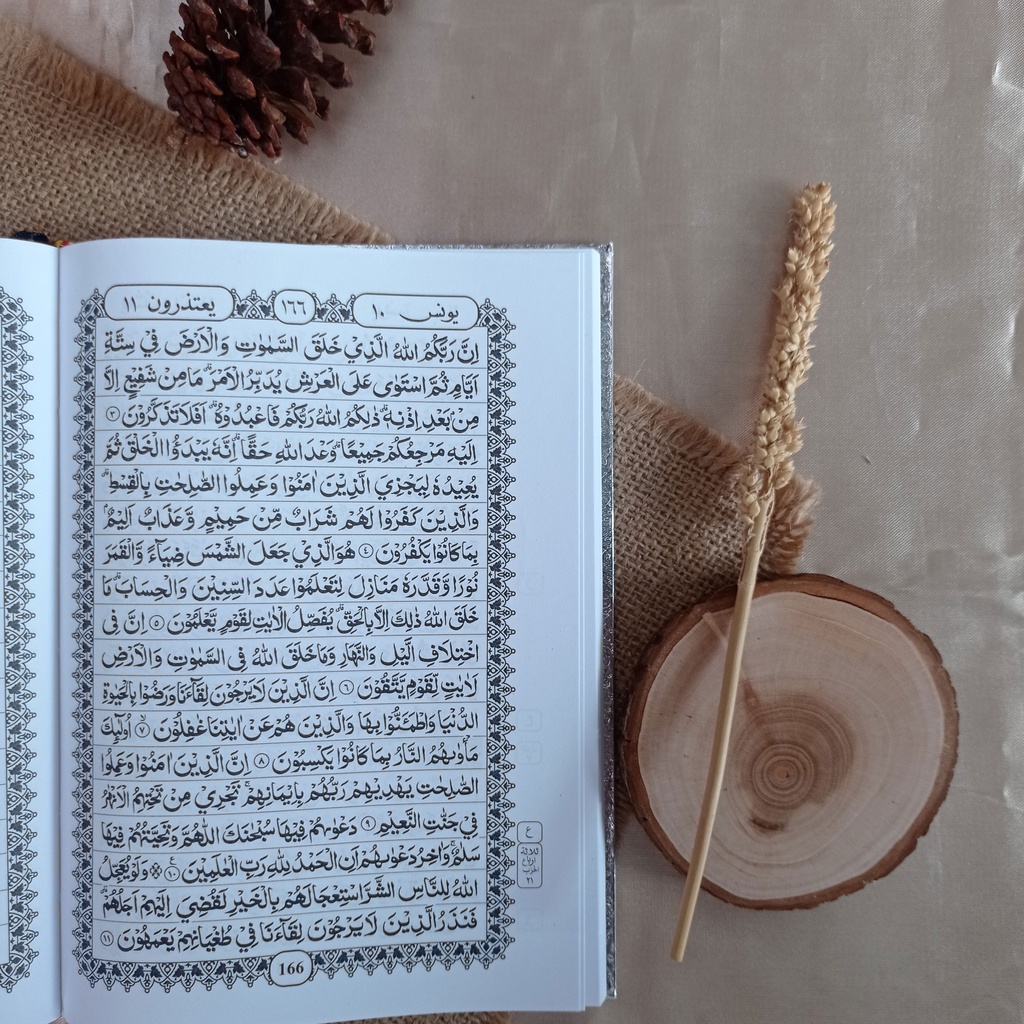 يونس ١٠
١٦٦
يعتذرون ١١
اِنَّ رَبَّكُمُ اللّٰهُ الَّذِيْ خَلَقَ السَّمٰوٰتِ وَالْاَرْضَ فِيْ سِتَّةِ
اَيَّامٍ ثُمَّ اسْتَوٰى عَلَى الْعَرْشِ يُدَبِّرُ الْاَمْرَۗ مَا مِنْ شَفِيْعٍ اِلَّا
مِنْۢ بَعْدِ اِذْنِهٖۗ ذٰلِكُمُ اللّٰهُ رَبُّكُمْ فَاعْبُدُوْهُۗ اَفَلَا تَذَكَّرُوْنَ ٣
اِلَيْهِ مَرْجِعُكُمْ جَمِيْعًاۗ وَعْدَ اللّٰهِ حَقًّاۗ اِنَّهٗ يَبْدَؤُا الْخَلْقَ ثُمَّ
يُعِيْدُهٗ لِيَجْزِيَ الَّذِيْنَ اٰمَنُوْا وَعَمِلُوا الصّٰلِحٰتِ بِالْقِسْطِۗ
وَالَّذِيْنَ كَفَرُوْا لَهُمْ شَرَابٌ مِّنْ حَمِيْمٍ وَّعَذَابٌ اَلِيْمٌۢ
بِمَا كَانُوْا يَكْفُرُوْنَ ٤ هُوَ الَّذِيْ جَعَلَ الشَّمْسَ ضِيَاۤءً وَّالْقَمَرَ
نُوْرًا وَّقَدَّرَهٗ مَنَازِلَ لِتَعْلَمُوْا عَدَدَ السِّنِيْنَ وَالْحِسَابَۗ مَا
خَلَقَ اللّٰهُ ذٰلِكَ اِلَّا بِالْحَقِّۗ يُفَصِّلُ الْاٰيٰتِ لِقَوْمٍ يَّعْلَمُوْنَ ٥ اِنَّ فِى
اخْتِلَافِ الَّيْلِ وَالنَّهَارِ وَمَا خَلَقَ اللّٰهُ فِى السَّمٰوٰتِ وَالْاَرْضِ
لَاٰيٰتٍ لِّقَوْمٍ يَّتَّقُوْنَ ٦ اِنَّ الَّذِيْنَ لَا يَرْجُوْنَ لِقَاۤءَنَا وَرَضُوْا بِالْحَيٰوةِ
الدُّنْيَا وَاطْمَـَٔنُّوْا بِهَا وَالَّذِيْنَ هُمْ عَنْ اٰيٰتِنَا غٰفِلُوْنَۙ ٧ اُولٰۤىِٕكَ
مَأْوٰىهُمُ النَّارُ بِمَا كَانُوْا يَكْسِبُوْنَ ٨ اِنَّ الَّذِيْنَ اٰمَنُوْا وَعَمِلُوا
الصّٰلِحٰتِ يَهْدِيْهِمْ رَبُّهُمْ بِاِيْمَانِهِمْۚ تَجْرِيْ مِنْ تَحْتِهِمُ الْاَنْهٰرُ
فِيْ جَنّٰتِ النَّعِيْمِ ٩ دَعْوٰىهُمْ فِيْهَا سُبْحٰنَكَ اللّٰهُمَّ وَتَحِيَّتُهُمْ فِيْهَا
سَلٰمٌۚ وَاٰخِرُ دَعْوٰىهُمْ اَنِ الْحَمْدُ لِلّٰهِ رَبِّ الْعٰلَمِيْنَ ࣖ ١٠ ۞ وَلَوْ يُعَجِّلُ
اللّٰهُ لِلنَّاسِ الشَّرَّ اسْتِعْجَالَهُمْ بِالْخَيْرِ لَقُضِيَ اِلَيْهِمْ اَجَلُهُمْۗ
فَنَذَرُ الَّذِيْنَ لَا يَرْجُوْنَ لِقَاۤءَنَا فِيْ طُغْيَانِهِمْ يَعْمَهُوْنَ ١١
ع
ثلاثة
ارباع
الحزب
٢١
166